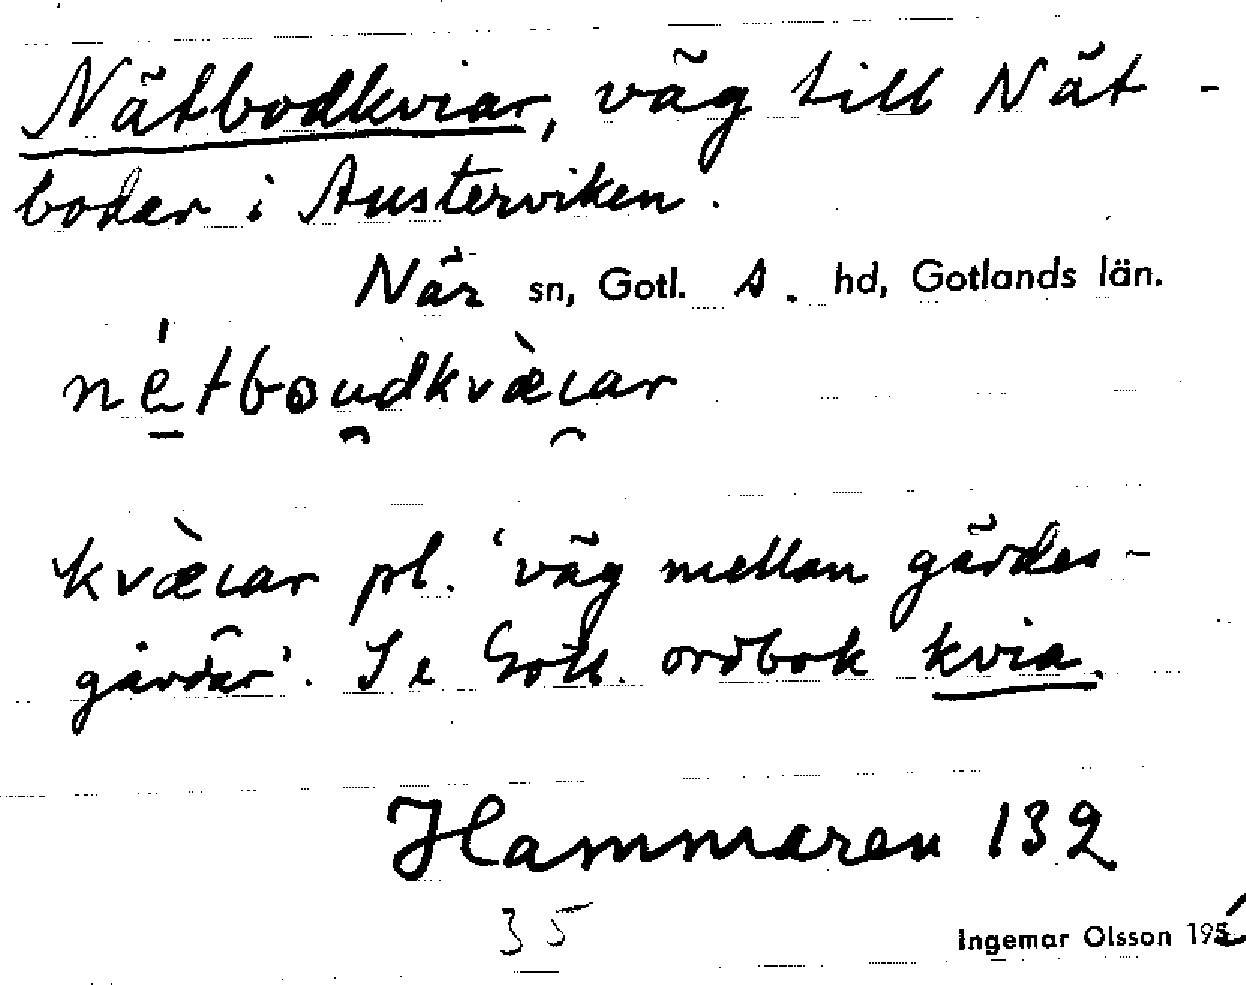 Nätbodkviar, väg till Nät-
bodar i Austerviken.
När sn, Gotl. s. hd, Gotlands län.
nétboudkvæ̀ıar
kvæ̀ıar pl. 'väg mellan gärdes-
gårdar'. Se Gotl. ordbok kvia.
Hammaren 132
35
Ingemar Olsson 195